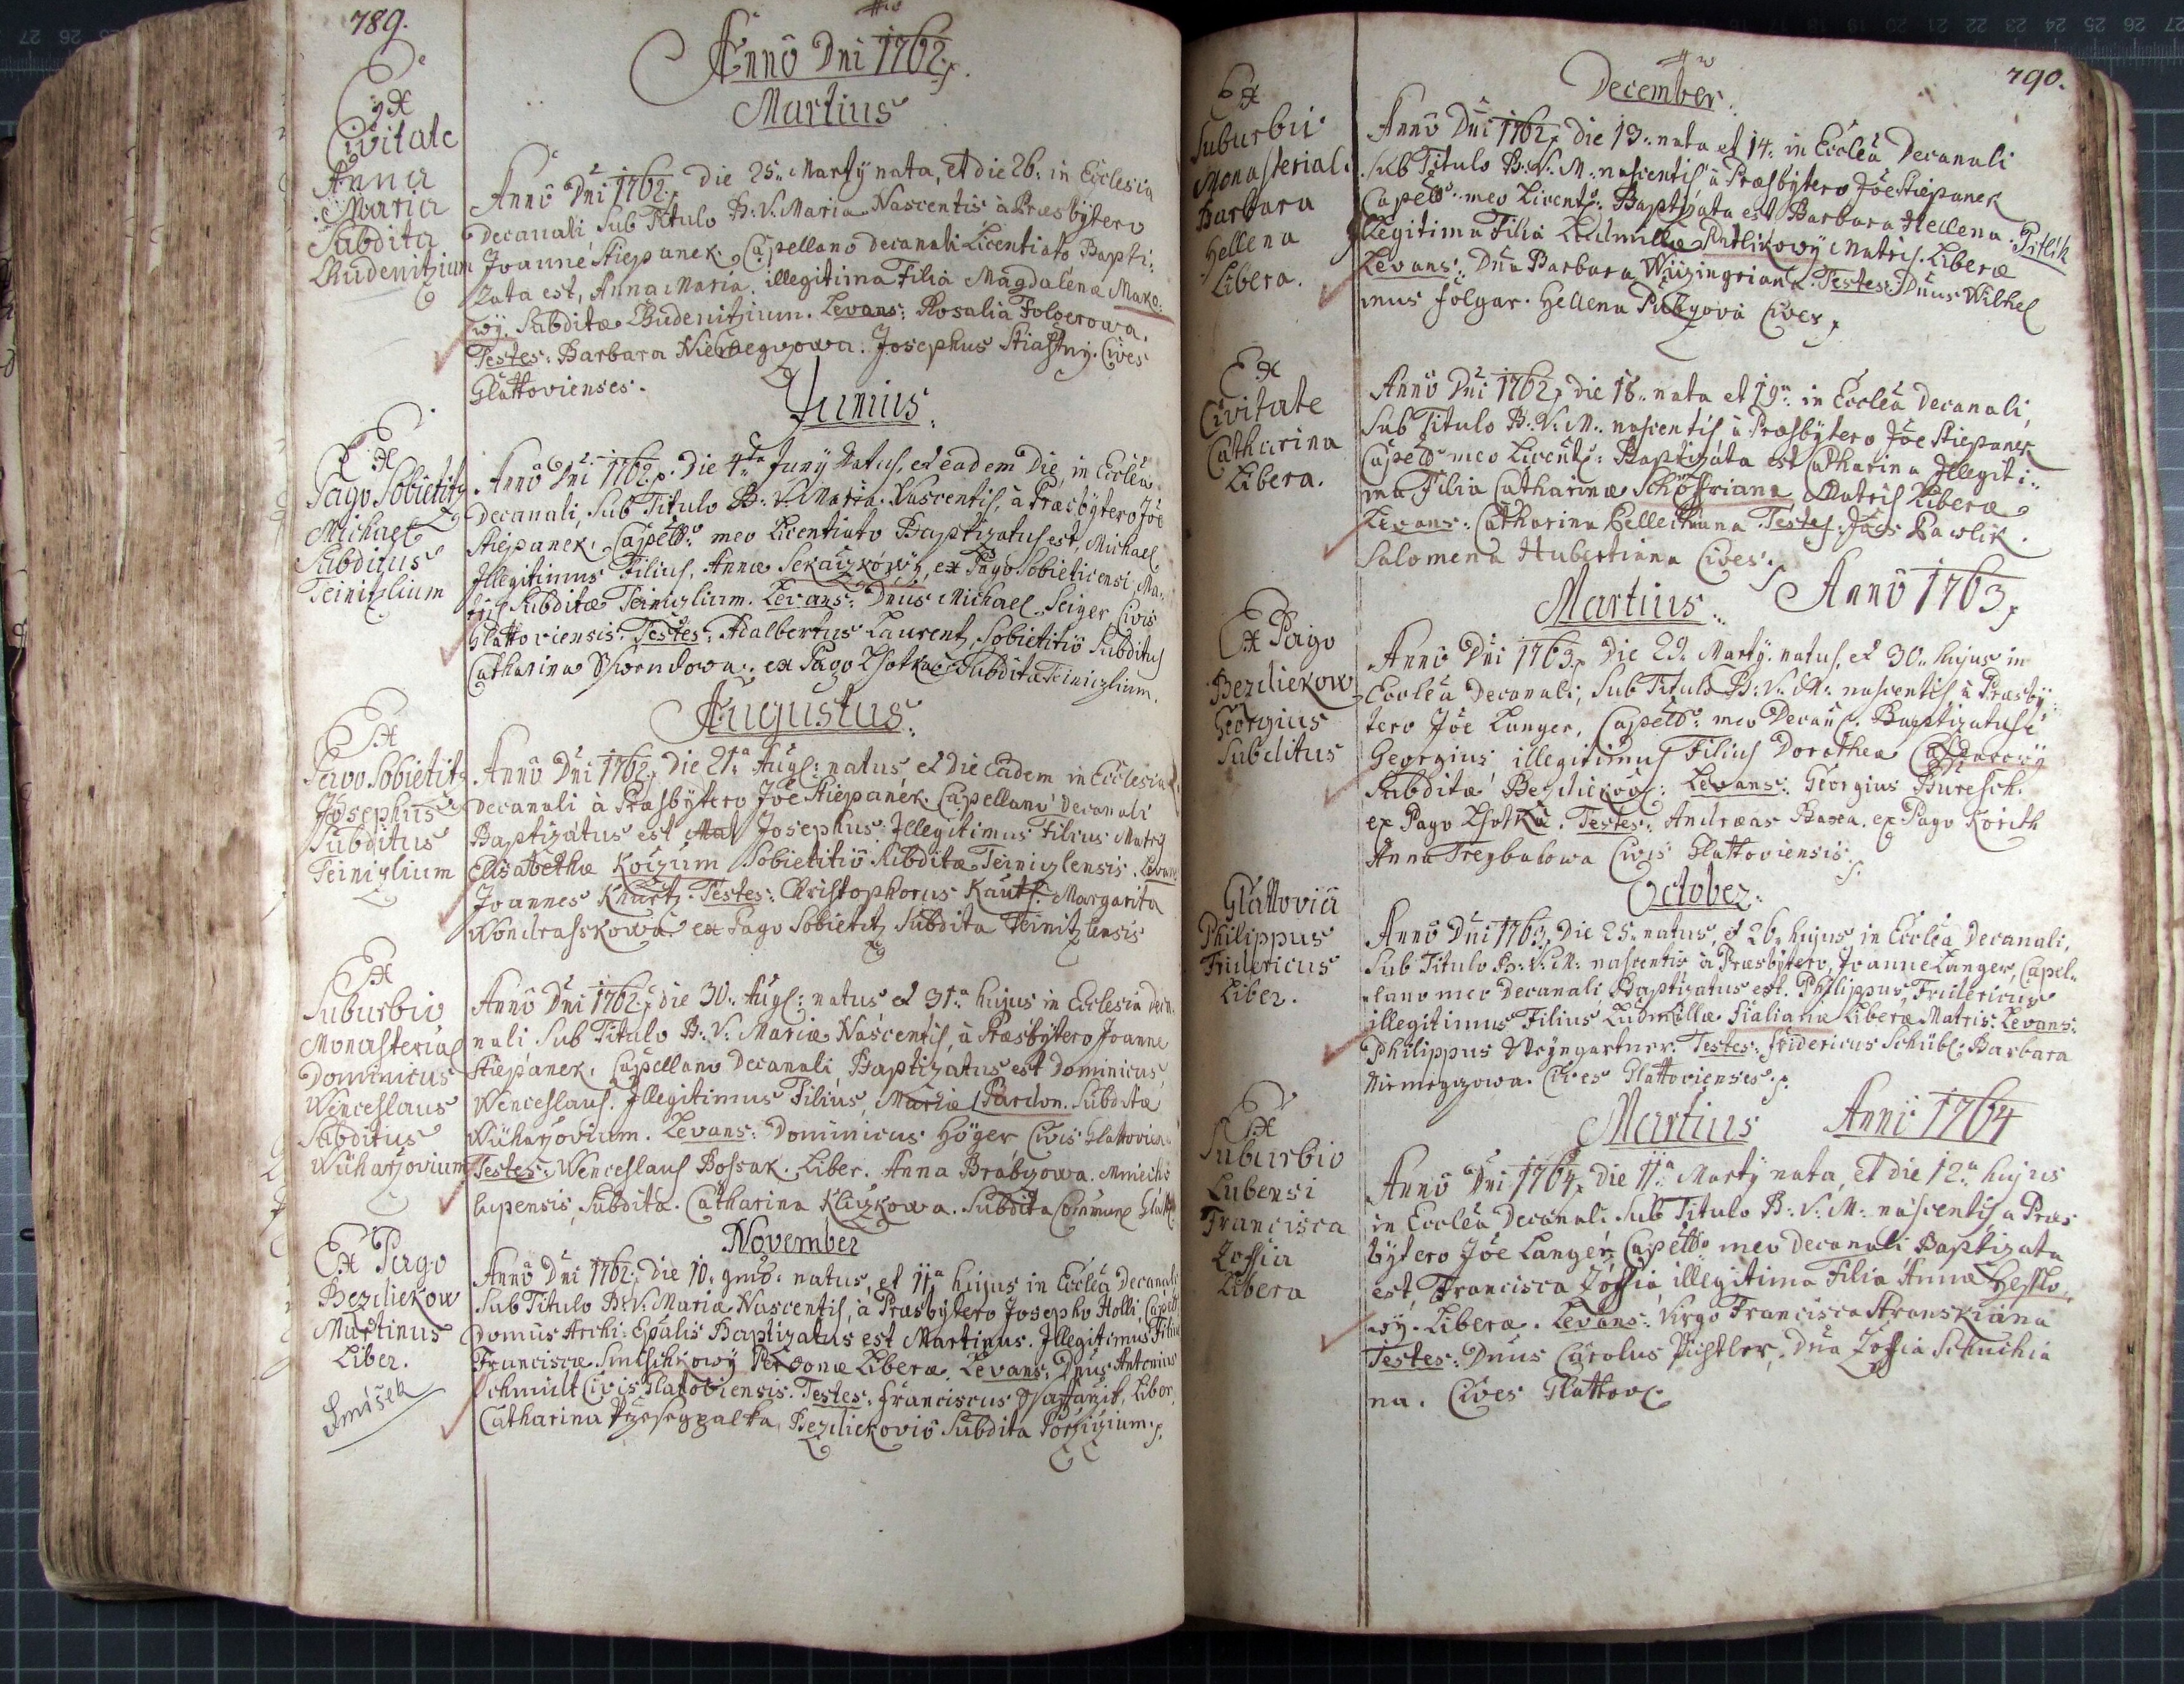 789.
Anno Dni 1762.
Martius
Ex
Civitate
Anna
Maria
Subdita
Chudenitzium
Anno Dni 1762. Die 25. Martÿ nata, et die 26. in Ecclesia
Decanali, Sub Titulo B: V. Maria Nascentis, à Præsbÿtero
Joanne Stiepanek, Capellano Decanali Licentiato Bapti:
zata est, Anna Maria, illegitima Filia Magdalena Mako:
wÿ. Subditæ Chudenitzium. Levans: Rosalia Folgerowa.
Testes: Barbara Josephus Stiastnÿ. Cives
Glattovienses.
Junius.
Ex
Pago Sobietitz
Michael
Subditus
Teinizlium
Anno Dni 1762. Die 4ta Junÿ Natus, et eadem Die, in Ecclea
Decanali, Sub Titulo B: V. Maria. Nascentis, à Præsbÿtero Joe
Stiepanek. Capello meo Licentiato Baptizatus est, Michael
Illegitimus Filius, Annæ Sekaizkowÿ, ex Pago Sobieticensi, Ma:
Subditæ Teinizlium. Levans: Dnus Michael Seiger Civis
Glattoviensis. Testes: Adalbertus Laurentz, Sobietitio Subditus
Catharina ex Pago Lhotka Subdita Teinizlium.
Augustus.
Ex
Pago Sobietitz
Josephus
Subditus
Teinizlium
Anno Dni 1762. Die 21a Augs: natus, et Die Eadem in Ecclesia
Decanali à Præsbÿtero Joe Stiepanek. Capellano Decanali
Baptizatus est Josephus: Illegitimus Filius Matris
Elisabethæ Koizum Sobietitio Subditæ Teinizlensis. Levans
Joannes Khurtz. Testes: Christophorus Kautz. Margarita
Wondrasskowa ex Pago Sobietitz Subdita Teinitzlensis
Ex
Suburbio
Monasterial
Dominicus
Wenceslaus
Subditus
Wuharzovium
Anno Dni 1762. die 30. Augs: natus, et 31a hujus in Ecclesia Deca
nali Sub Titulo B: V. Maria Nascentis, à Præsbÿtero Joanne
Stiepanek, Capellano Decanali, Baptizatus est Dominicus,
Wenceslaus. Illegitimus Filius, Mariæ Pardon. Subditæ
Wuharzovium. Levans: Dominicus Höger Civis Glattovien
Testes: Wenceslaus Bossak. Liber. Anna Brabzowa. Mniechs
hupensis, Subdita. Catharina Kliczkowa. Subdita Glatt
November
Ex Pago
Beziliekow
Martinus
Liber.
Smíšek
Anno Dni 1762. Die 10. 9mb: natus, et 11a hujus in Ecclea Decanali
Sub Titulo B: V. Mariæ Nascentis, à Præsbÿtero Josepho Holli, Capell
Domus Archi: Epalis Baptizatus est Martinus. Illegitimus Filius
Franciscæ Smischkowÿ Personæ Liberæ. Levans: Dnus Antonius
Schmidt Civis Glatoviensis. Testes: Franciscus Liber
Catharina Beziliekovio Subdita
790.
December.
Ex
Suburbii
Monasterial:
Barbara
Hellena
Libera.
Anno Dni 1762. Die 13. nata et 14. in Ecclea Decanali
Sub Titulo B: V: M: nascentis, à Præsbÿtero Joe Stiepanek
Capello meo Licent: Baptizata est Barbara Hellena.
Illegitima Filia Ludmillæ Pitlikowÿ Matris Liberæ Pitlik
Levans: Dna Barbara Testes: Dnus Wilhel
mus Folgar. Hellena Cives.
Ex
Civitate
Catharina
Libera.
Anno Dni 1762. Die 18. nata et 19. in Ecclea Decanali,
Sub Titulo B: V: M: nascentis, à Præsbÿtero Joe Stiepanek
Capello meo Licent: Baptizata est Catharina Illegiti:
ma Filia Catharinæ Matris Liberæ
Levans: Catharina Testes: Joes Pawlik.
Salomena Hubertiana Cives.
Martius. Anno 1763.
Ex Pago
Beziliekow
Georgius
Subditus
Anno Dni 1763. Die 29. Martÿ natus, et 30. hujus in
Ecclea Decanali, Sub Titulo B: V: M: nascentis à Præsbÿ:
tero Joe Langer, Capello meo Decan: Baptizatus e
Georgius illegitimus Filius Dorotheæ
Subditæ Levans: Georgius Buresch.
ex Pago Lhotka. Testes: Andræas ex Pago Korith
Anna Civis Glattoviensis.
October.
Glattovia
Philippus
Fridericus
Liber.
Anno Dni 1763. Die 25. natus, et 26. hujus in Ecclea Decanali,
Sub Titulo B: V: M: nascentis à Præsbÿtero, Joanne Langer, Capel:
lano meo Decanali Baptizatus est. Philippus, Fridericus
illegitimus Filius Ludmillæ Fialiana Liberæ Matris: Levans:
Philippus Weÿngartner. Testes: Fridericus Schübl: Barbara
Niemegzowa. Cives Glattovienses.
Martius Anni 1764
Ex
Suburbio
Lubensi
Francisca
Zoffia
Libera
Anno Dni 1764. Die 11a Martÿ nata, et die 12a hujus
in Ecclea Decanali Sub Titulo B: V: M: nascentis, a Præs
bÿtero Joe Langer, Capello meo Decanali Baptizata
est, Francisca Zoffia, illegitima Filia Annæ Hesslo
wÿ. Liberæ. Levans: Virgo Francisca Stranskiana
Testes: Dnus Carolus Dna Zoffia Schuchia
na. Cives Glattov